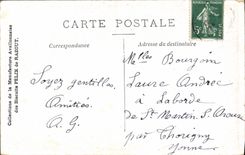 CARTE POSTALE
Correspondance
Adresse du destinataire
Collections de la Manufacture Avallonnaise
des Biscuits FELIX de RAGOUT.
Soyez gentilles.
Amitiés
A. G.
Melles Bourgoin
Laure Andrée
à Laborde
de St Martin S. Oreuse
par Thorigny
Yonne